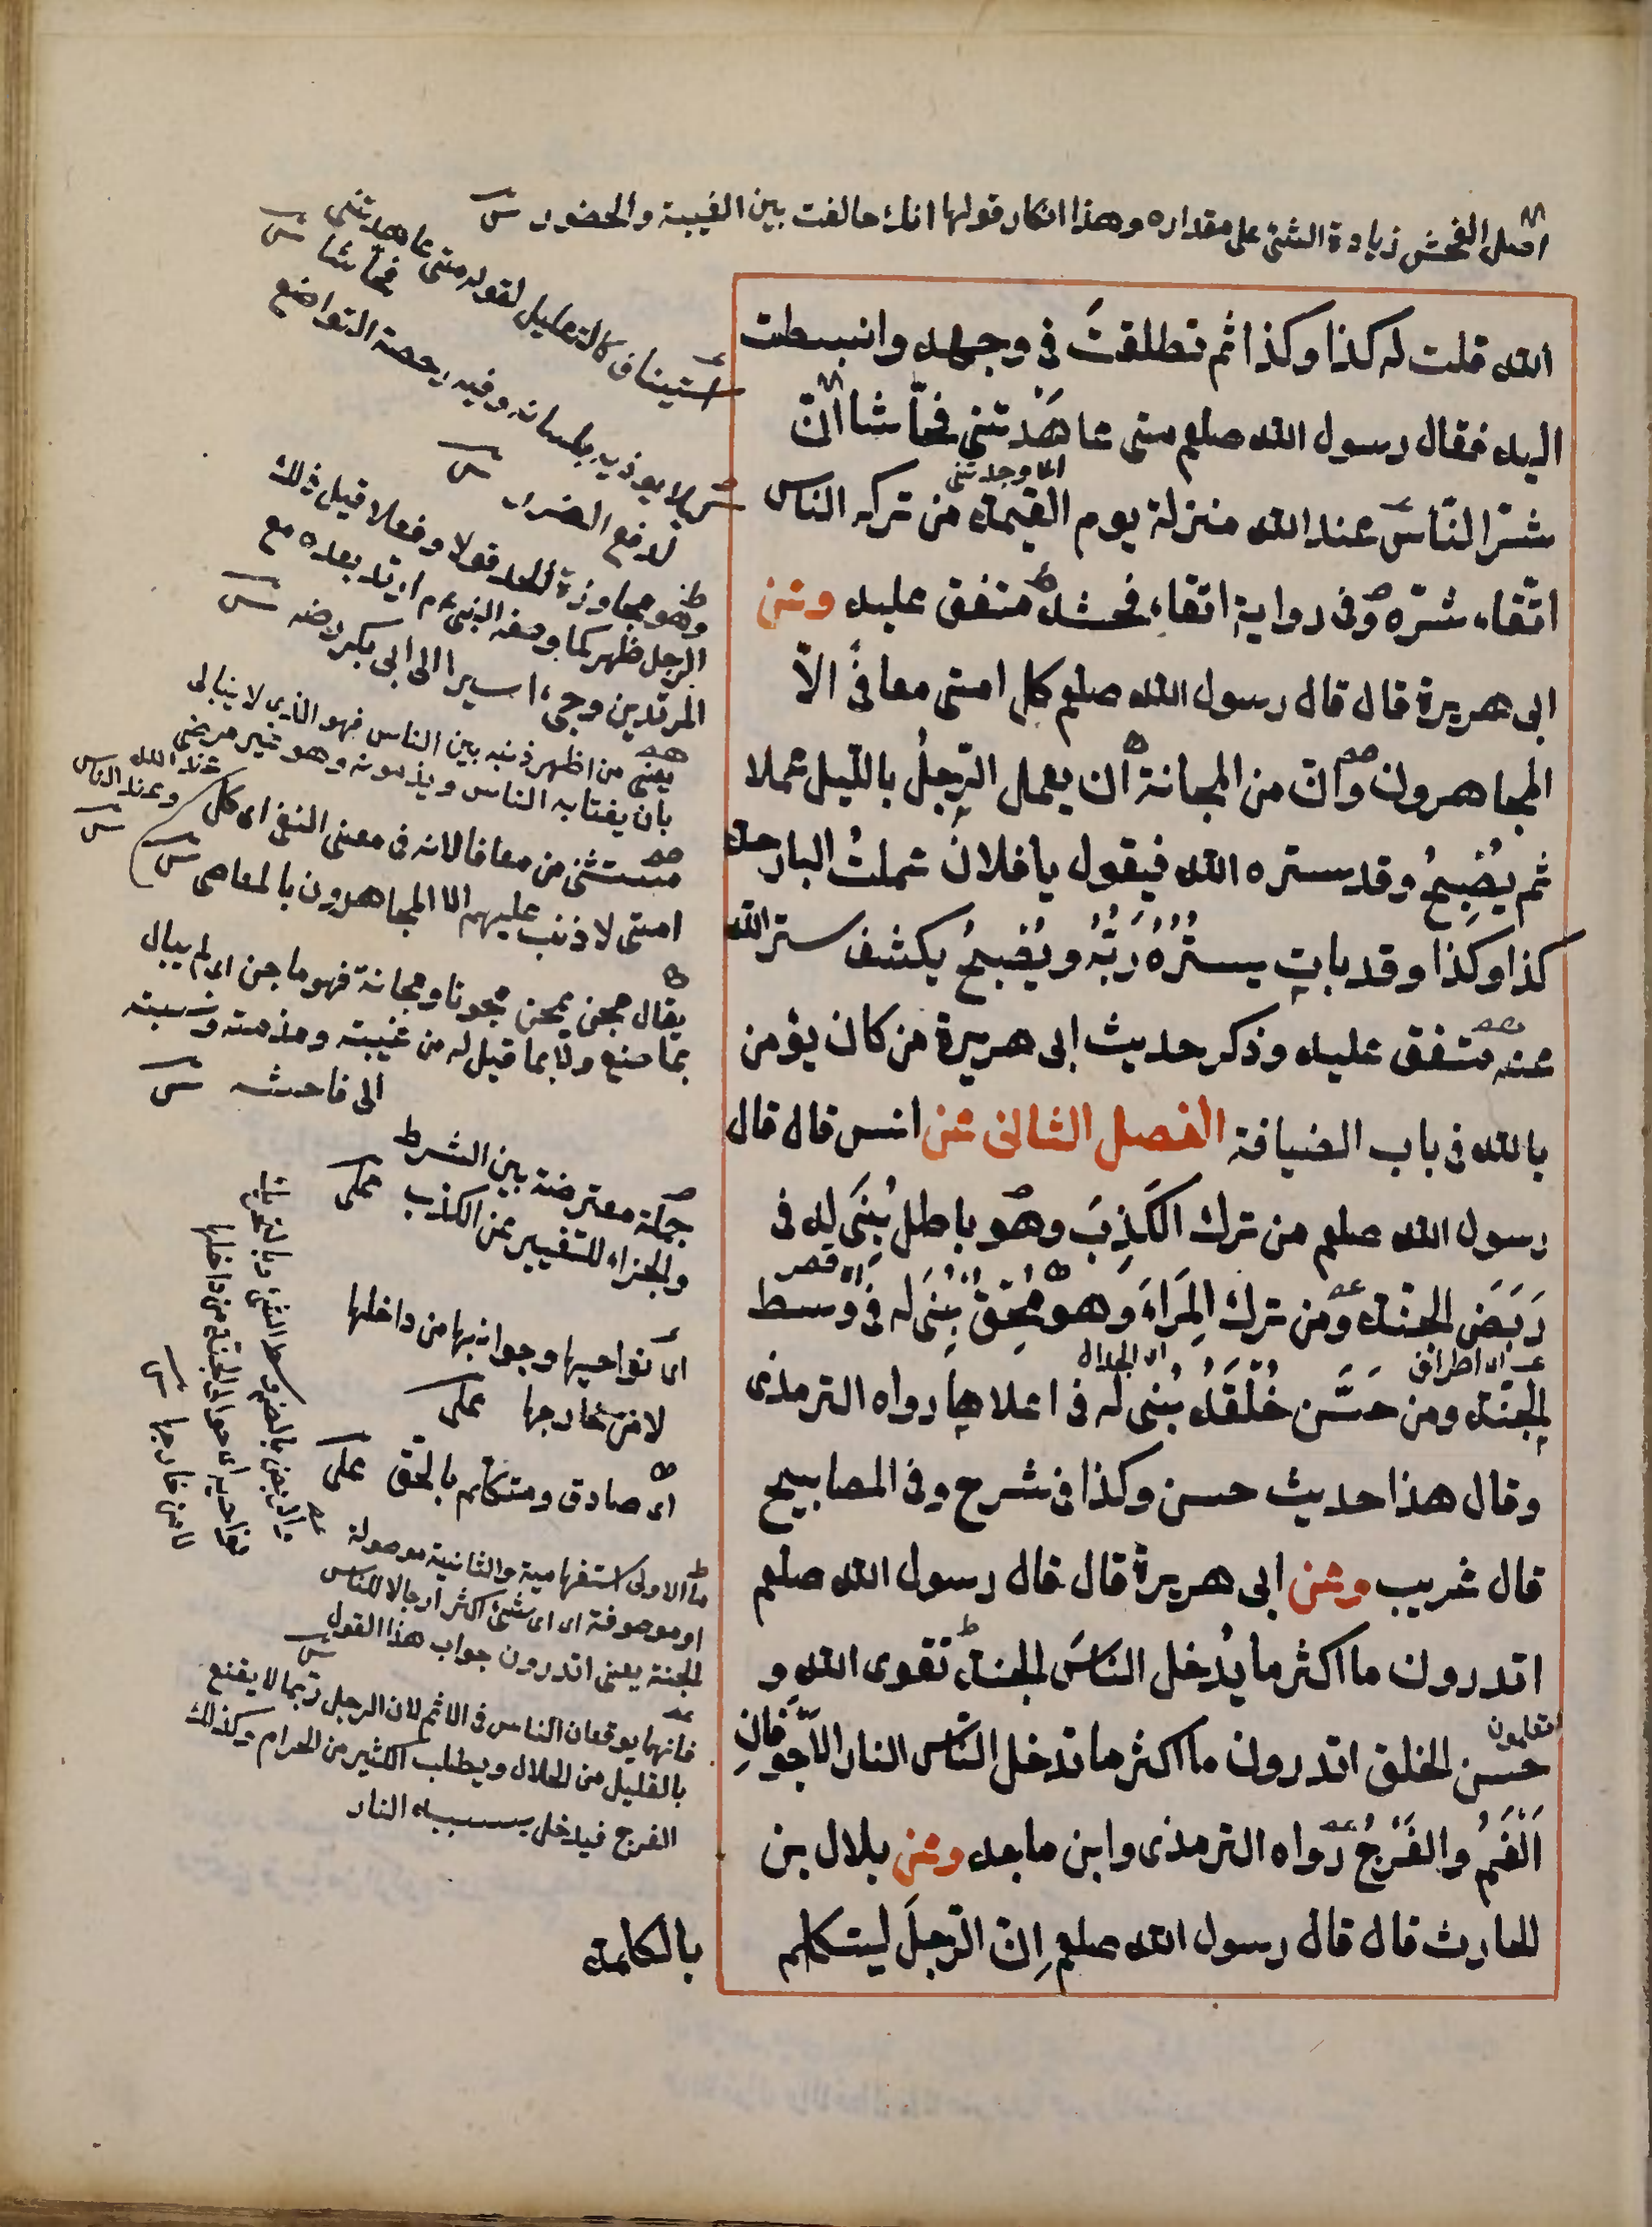 اصل الفحش زيادة الشئ على مقداره وهذا انكار قولها انك خالفت بين الغيبة والحضور
الله قلت له كذا وكذا ثم تطلقتَ فى وجهه وانبسطت
اليه فقال رسول الله صلعم متى عاهَدْتنى فحّاشا انّ
اى وجدتنى
شرّ النّاس عند الله منزلة يوم القيمة من تركه الناس
اتّقاء شرّه وفى رواية اتقاء فحشه متفق عليه وعن
ابى هريرة قال قال رسول الله صلعم كل امتى معافًى الاّ
المجاهرون وانّ من المجانة ان يعمل الرّجلُ بالليل عملا
ثم يُصْبِحُ وقد ستره الله فيقول يا فلان عملتُ البارحة
كذا وكذا وقد باتِ يستُرُهُ رَبُّهُ ويُصْبحُ يكشف ستر الله
عنه متفق عليه وذكر حديث ابى هريرة من كان يؤمن
بالله فى باب الضيافة الفصل الثانى عن انس قال قال
رسول الله صلعم من ترك الكَذِبَ وهو باطل بُنِىَ له فى
اى قصر
رَبَضِ الجنّة ومن ترك المِرَاءَ وهو مُحِقٌّ بُنِىَ له فى وسط
اى اطراف
اى الجدال
الجنّة ومن حَسَّن خُلْقَهُ بُنى له فى اعلاها رواه الترمذى
وقال هذا حديث حسن وكذا فى شرح وفى المصابيح
قال غريب وعن ابى هريرة قال قال رسول الله صلعم
اتدرون ما اكثر ما يُدْخل الناسَ الجنة تقوى الله و
اتعلمون
حسن الخلق اتدرون ما اكثر ما تدخل النّاس النار الاَجْوَفانِ
اَلْفَمُ والفَرْجُ رواه الترمذى وابن ماجه وعن بلال بن
الحارث قال قال رسول الله صلعم اِنّ الرّجلَ ليتكلم
بالكلمة
استيناف كالتعليل لقوله متى عاهدتنى
فحاشا
لا يوذيه بلسانه وفيه رخصة التواضع
لدفع الضرر
وهو مجاوزة الحد قولا وفعلا قيل ذلك
الرجل ظهر كما وصفه النبى عم ارتد بعده مع
المرتدين وجئ اسيرا الى ابى بكر رضه
يعنى من اظهر ذنبه بين الناس فهو الذى لا يبالى
بان يغتابه الناس ويذمونه وهو غير مرضى
عند الله
وعند الناس
مستثنى من معافا لانه فى معنى النفى اى كل
امتى لا ذنب عليهم الا المجاهرون بالمعاصى
يقال مجن يمجن مجونا ومجانة فهو ماجن اى لم يبال
بما صنع ولا بما قيل له من غيبته ومذمته ونسبته
الى فاحشه
جملة معترضة بين الشرط
والجزاء للتنفير عن الكذب على
اى نواحيها وجوانبها من داخلها
لا من خارجها على
اى صادق ومتكلم بالحق على
ما الاولى استفهامية والثانية موصولة
او موصوفة اى اى شئ اكثر ادخالا للناس
الجنة يعنى اتدرون جواب هذا القول
فانهما يوقعان الناس فى الاثم لان الرجل ربما لا يقنع
بالقليل من الحلال ويطلب الكثير من الحرام وكذلك
الفرج فيدخل بسببه النار
نواحيه اى حوالى الجنة من داخلها
لا من خارجها